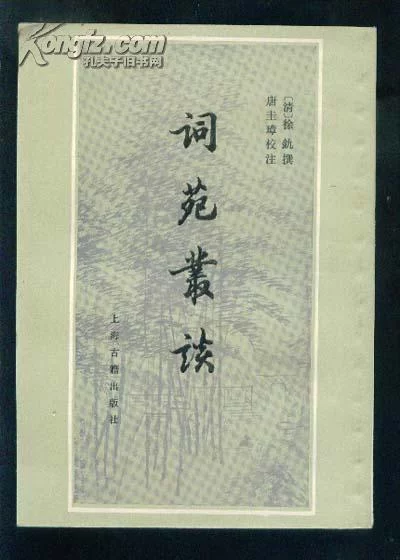 Kongfz.com
孔夫子旧书网
〔清〕徐釚撰
唐圭璋校注
词苑叢談
上海古籍出版社